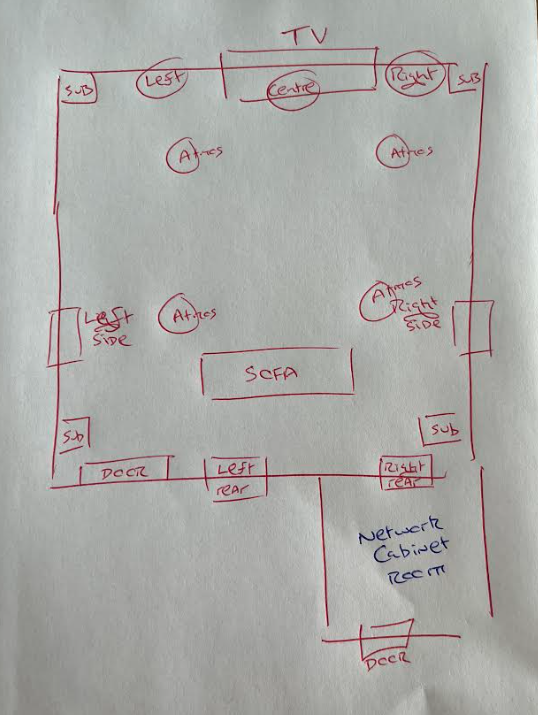 TV
SUB
Left
Centre
Right
SUB
Atmos
Atmos
Atmos
Atmos
Left
Side
Right
Side
SOFA
Sub
Sub
DOOR
Left
rear
Right
rear
Network
Cabinet
Room
DOOR